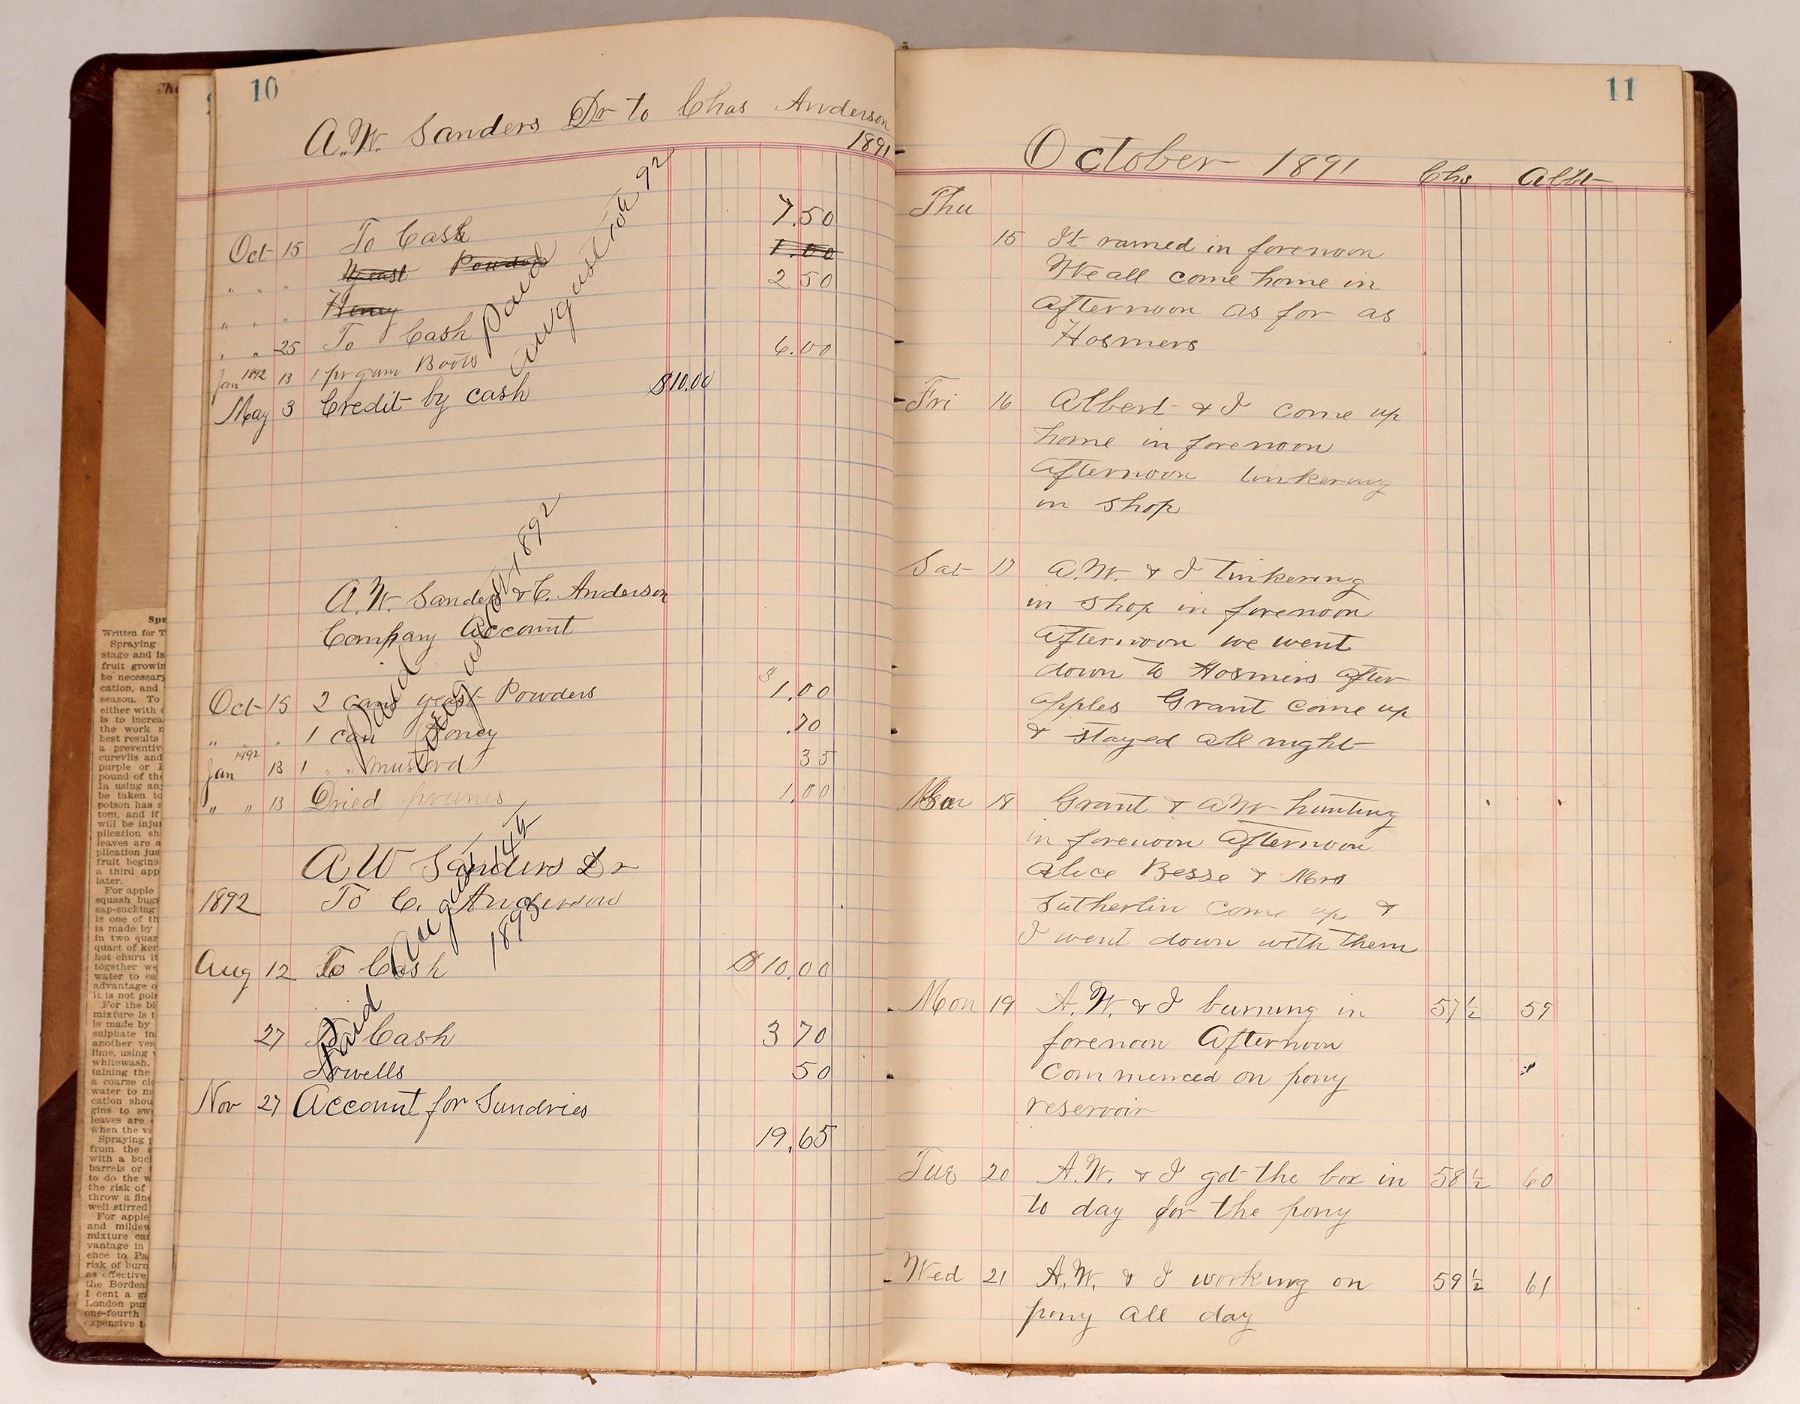 10
A.W. Sanders Dr to Chas Anderson
1891
Oct 15 To Cash 7.50
" " " Yeast Powders 1.00
" " " Honey 2 50
" " 25 To Cash
Jan 1892 13 1 pr gum Boots 6.00
May 3 Credit by cash $10.00
Paid
August 10th 92
A.W. Sanders & C. Anderson
Company Account
Oct 15 2 cans yeast Powders $ 1.00
" " " 1 can Honey .70
Jan 1892 13 1 " " mustard 35
" " 13 Dried prunes 1.00
Paid
1892
A W Sanders Dr
1892 To C. Anderson
Aug 12 To Cash $10.00
27 To Cash 3 70
Towells 50
Nov 27 Account for Sundries
19.65
Paid August 14th
189
11
October 1891 Chs Albt
Thu
15 It rained in forenoon
We all come home in
afternoon as for as
Hosmers
Fri 16 Albert & I come up
home in forenoon
afternoon tinkering
in shop
Sat 17 A.W. & I tinkering
in shop in forenoon
afternoon we went
down to Hosmers after
apples Grant come up
& stayed all night
18 Grant & A W hunting
in forenoon afternoon
Alice Besse & Mrs
Sutherlin come up &
I went down with them
Mon 19 A.W. & I burning in 57 1/2 59
forenoon Afternoon
Commenced on pony
reservoir
Tue 20 A.W. & I got the box in 58 1/2 60
to day for the pony
Wed 21 A.W. & I working on 59 1/2 61
pony all day
Written for T
Spraying
stage and is
fruit growin
be necessary
cation, and
season. To
either with
is to increa
the work
best results
a preventiv
curevlis and
purple or
pound of the
In using an
be taken to
poison has
tom, and if
will be inju
plication sh
leaves are a
plication jus
fruit begins
a third app
later.
For apple
squash bug
sap-sucking
is one of th
is made by
in two quar
quart of ker
hot churn it
together we
water to ea
advantage o
it is not pois
For the bl
mixture is t
is made by
sulphate in
another ves
lime, using
whitewash.
taining the
a coarse cl
water to m
cation shou
gins to swe
leaves are
when the v
Spraying
from the
with a buc
barrels or
to do the w
the risk of
throw a fine
well stirred
For apple
and mildew
mixture ca
vantage in
ence to Pa
risk of burn
as effective
the Bordea
1 cent a g
London pur
one-fourth
expensive t